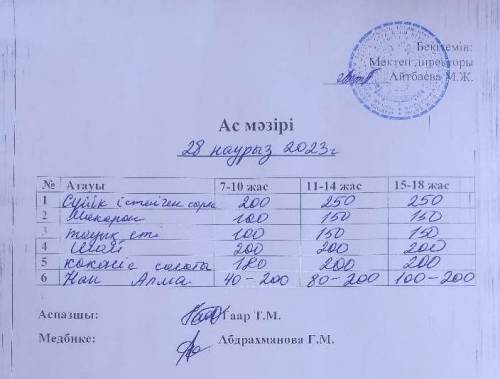 Бекітемін:
Мектеп директоры
Айтбаева М.Ж.
Ас мәзірі
28 наурыз 2023г
№ Атауы 7-10 жас 11-14 жас 15-18 жас
1 Сүйік 200 250 250
2 Макарон 100 150 150
3 тауық еті 100 150 150
4 Шай 200 200 200
5 көкөніс салаты 180 200 200
6 Нан Алма 40-200 80-200 100-200
Аспазшы: Гаар Т.М.
Медбике: Абдрахманова Г.М.